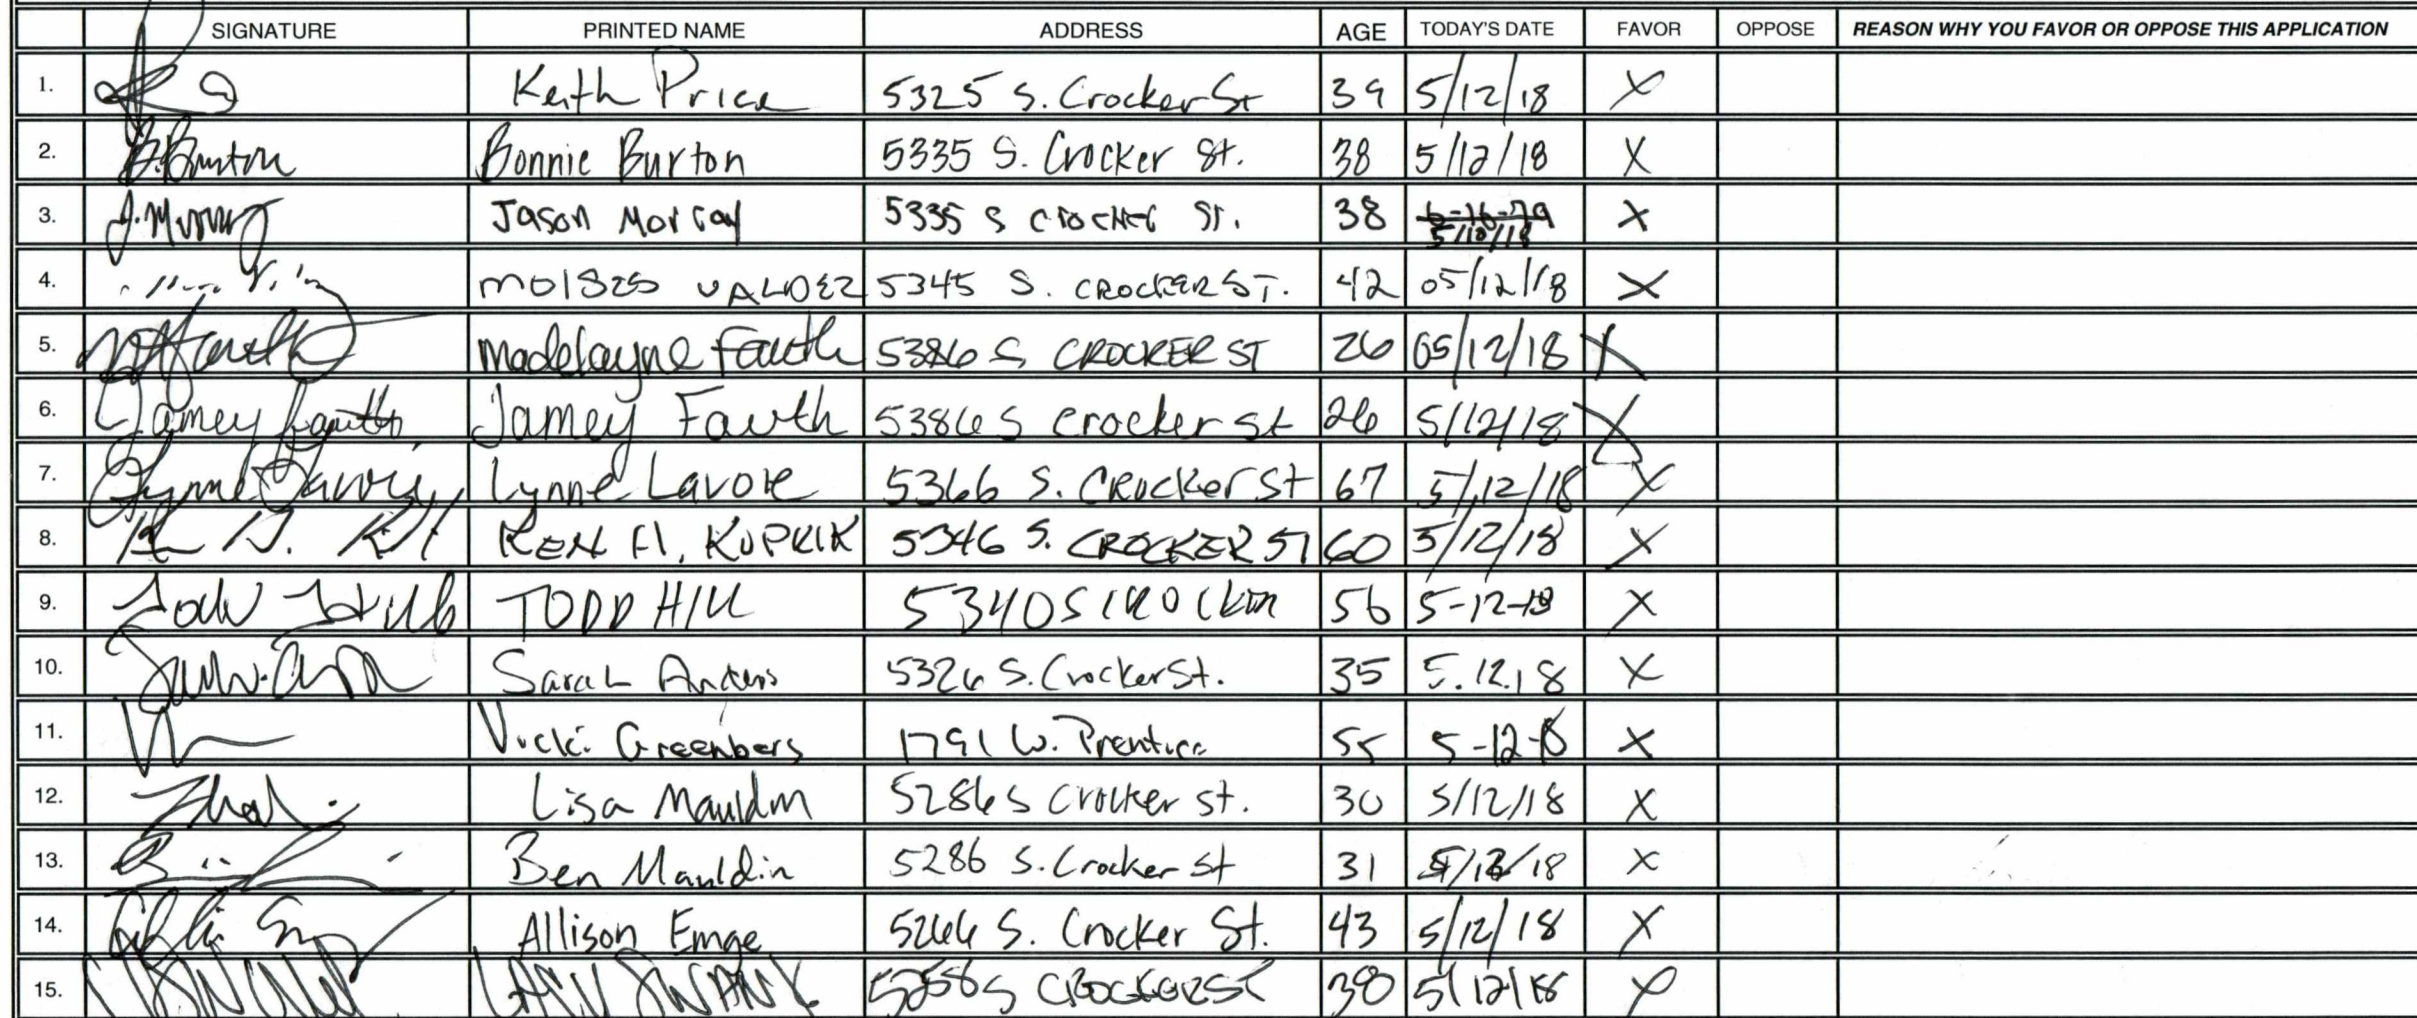 SIGNATURE PRINTED NAME ADDRESS AGE TODAY'S DATE FAVOR OPPOSE REASON WHY YOU FAVOR OR OPPOSE THIS APPLICATION
1. Keith Price 5325 S. Crocker St 39 5/12/18 X
2. B. Burton Bonnie Burton 5335 S. Crocker St. 38 5/12/18 X
3. J. Murray Jason Morray 5335 S Crocker St. 38 X
4. MOISES VALDEZ 5345 S. CROCKER ST. 42 05/12/18 X
5. Madelayne Fauth 5386 S CROCKER ST 26 05/12/18 X
6. Jamey Fauth Jamey Fauth 5386 S Crocker St 26 5/12/18 X
7. Lynne Lavoie 5366 S. Crocker St 67 5/12/18 X
8. KEN H. 5346 S. CROCKER ST 60 5/12/18 X
9. TODD HILL 5340 S CROCKER 56 5-12-18 X
10. Sarah Anders 5326 S. Crocker St. 35 5.12.18 X
11. Vicki Greenberg 1791 W. Prentice 55 5-12-18 X
12. Lisa Mauldin 5286 S Crocker St. 30 5/12/18 X
13. Ben Mauldin 5286 S. Crocker St 31 5/12/18 X
14. Allison Emge 5266 S. Crocker St. 43 5/12/18 X
15. SWANK 5258 S CROCKER ST 38 5/12/18 X